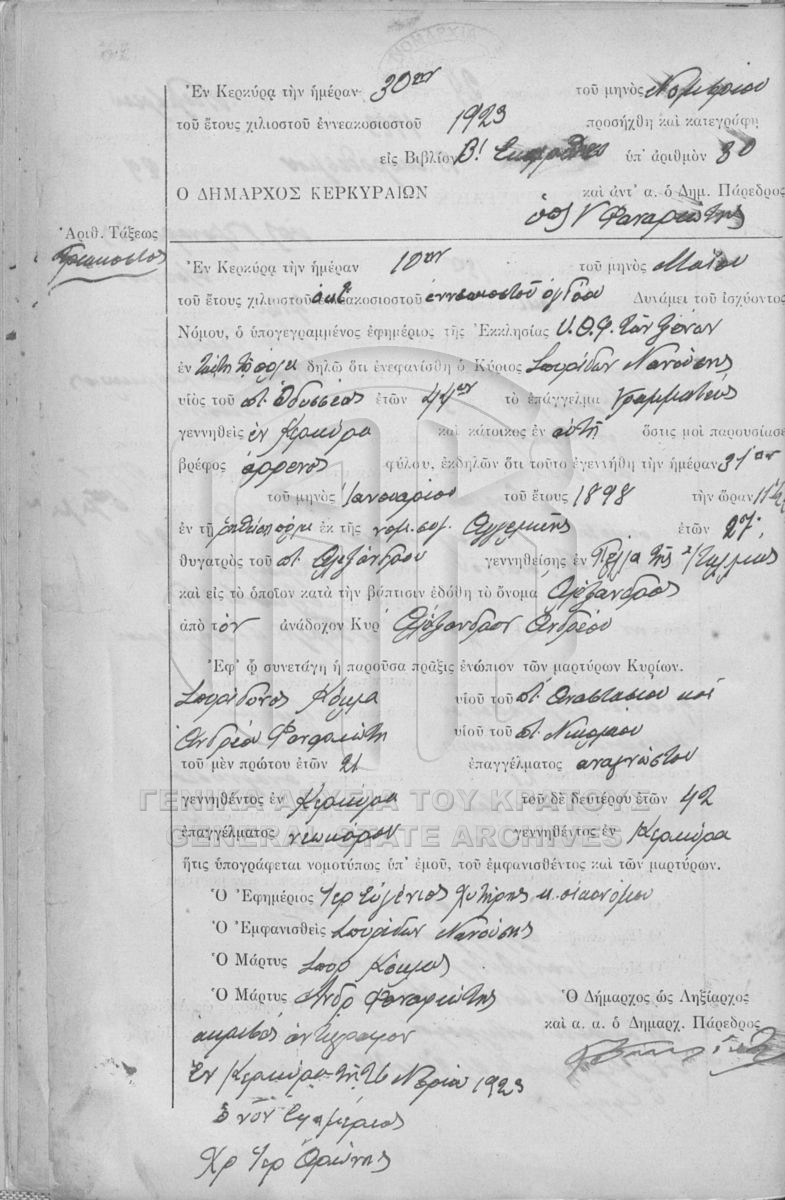 Ἐν Κερκύρᾳ τὴν ἡμέραν 30ην τοῦ μηνὸς Νοεμβρίου
τοῦ ἔτους χιλιοστοῦ ἐννεακοσιοστοῦ 1923 προσήχθη καὶ κατεγράφη
εἰς Βιβλίον Β! ὑπ' ἀριθμὸν 30
Ο ΔΗΜΑΡΧΟΣ ΚΕΡΚΥΡΑΙΩΝ καὶ ἀντ' α. ὁ Δημ. Πάρεδρος
Φαναριώτης
Ἀριθ. Τάξεως
Τριακοστὸς
Ἐν Κερκύρᾳ τὴν ἡμέραν 10ην τοῦ μηνὸς Μαΐου
τοῦ ἔτους χιλιοστοῦ ὀκτ ἐννεακοσιοστοῦ ἐννενηκοστοῦ ὀγδόου Δυνάμει τοῦ ἰσχύοντος
Νόμου, ὁ ὑπογεγραμμένος ἐφημέριος τῆς Ἐκκλησίας Υ.Θ.Φ. τῶν Ξένων
ἐν ταύτῃ τῇ πόλει δηλῶ ὅτι ἐνεφανίσθη ὁ Κύριος Σπυρίδων Νανούσης
υἱὸς τοῦ π. Ὀδυσσέως ἐτῶν 44ων τὸ ἐπάγγελμα Γραμματεὺς
γεννηθεὶς ἐν Κερκύρᾳ καὶ κάτοικος ἐν αὐτῇ ὅστις μοὶ παρουσίασε
βρέφος ἄρρενος φύλου, ἐκδηλῶν ὅτι τοῦτο ἐγεννήθη τὴν ἡμέραν 31ην
τοῦ μηνὸς Ἰανουαρίου τοῦ ἔτους 1898 τὴν ὥραν 11½
ἐν τῇ ῥηθείσῃ πόλει ἐκ τῆς νομ. συζ. Ἀγγελικῆς ἐτῶν 27
θυγατρὸς τοῦ π. Ἀλεξάνδρου γεννηθείσης ἐν τῆς Ἰταλίας
καὶ εἰς τὸ ὁποῖον κατὰ τὴν βάπτισιν ἐδόθη τὸ ὄνομα Ἀλέξανδρος
ἀπὸ τὸν ἀνάδοχον Κυρ Ἀλέξανδρον Ἀνδρέου
Ἐφ' ᾧ συνετάγη ἡ παροῦσα πρᾶξις ἐνώπιον τῶν μαρτύρων Κυρίων.
Σπυρίδωνος Κόκλα υἱοῦ τοῦ π. Ἀναστασίου καὶ
Ἀνδρέα Φαναριώτη υἱοῦ τοῦ π. Νικολάου
τοῦ μὲν πρώτου ἐτῶν 21 ἐπαγγέλματος ἀναγνώστου
γεννηθέντος ἐν Κερκύρᾳ τοῦ δὲ δευτέρου ἐτῶν 42
ἐπαγγέλματος νεωκόρου γεννηθέντος ἐν Κερκύρᾳ
ἥτις ὑπογράφεται νομοτύπως ὑπ' ἐμοῦ, τοῦ ἐμφανισθέντος καὶ τῶν μαρτύρων.
Ὁ Ἐφημέριος Ἱερ Εὐγένιος Χυτήρης κ. οἰκονόμου
Ὁ Ἐμφανισθεὶς Σπυρίδων Νανούσης
Ὁ Μάρτυς Σπυρ Κόκλας
Ὁ Μάρτυς Ἀνδρ Φαναριώτης
Ὁ Δήμαρχος ὡς Ληξίαρχος
καὶ α. α. ὁ Δημαρχ. Πάρεδρος
ἀκριβὲς ἀντίγραφον
Ἐν Κερκύρᾳ τῇ 26 Νβρίου 1923
ὁ νῦν ἐφημέριος
ΓΕΝΙΚΑ ΑΡΧΕΙΑ ΤΟΥ ΚΡΑΤΟΥΣ
GENERAL STATE ARCHIVES